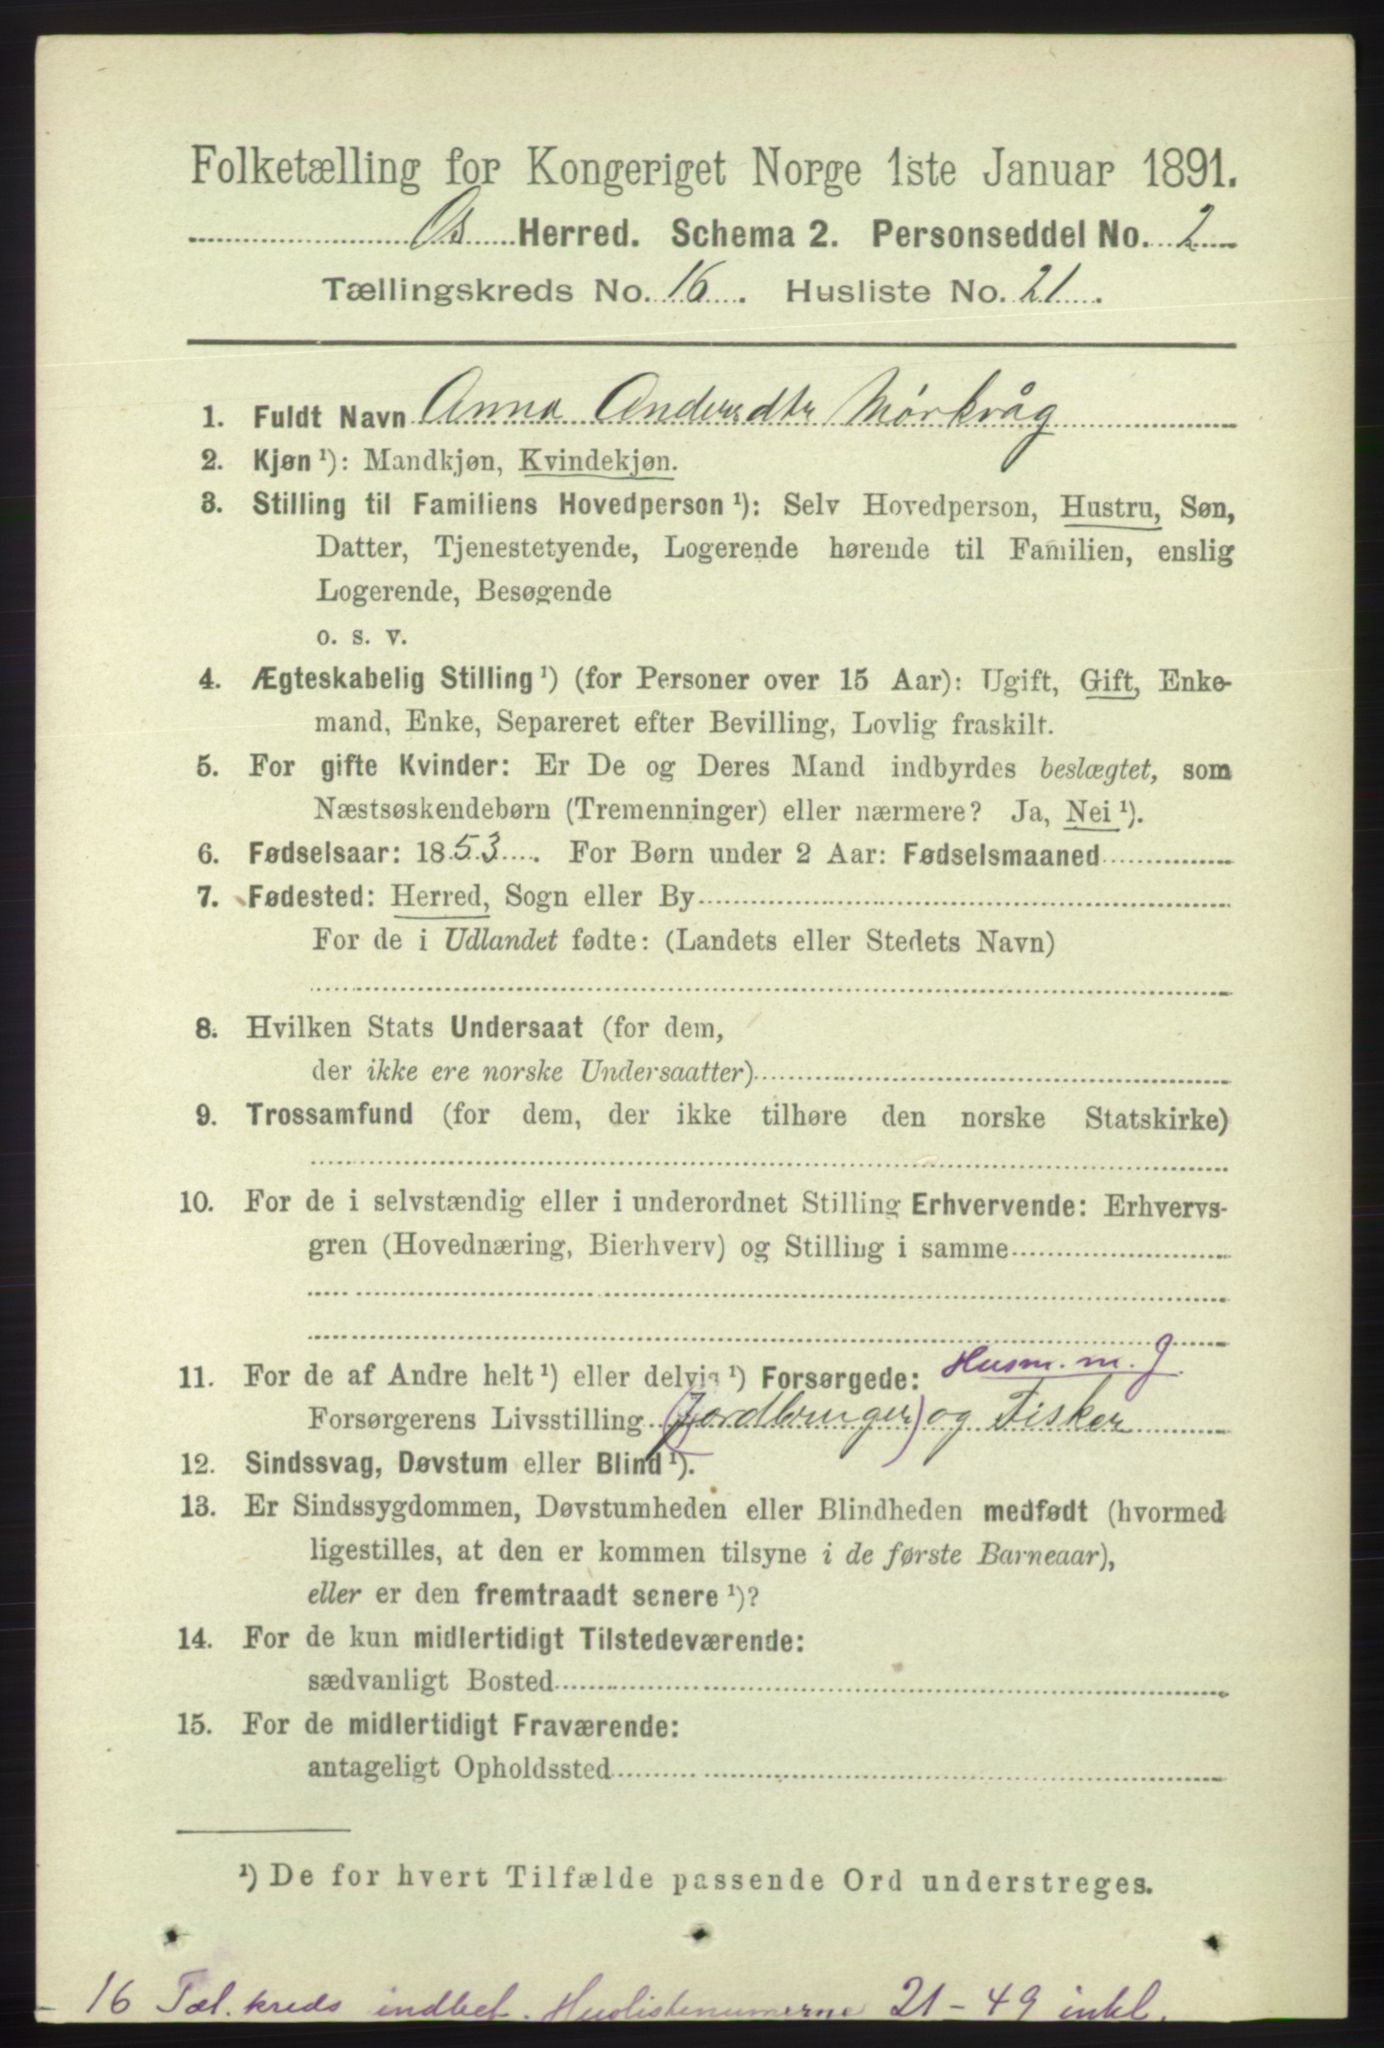 Folketælling for Kongeriget Norge 1ste Januar 1891.
Os Herred. Schema 2. Personseddel No. 2
Tællingskreds No. 16. Husliste No. 21.
1. Fuldt Navn Anna Andersdtr Mørkvåg
2. Kjøn¹): Mandkjøn, Kvindekjøn.
3. Stilling til Familiens Hovedperson¹): Selv Hovedperson, Hustru, Søn,
Datter, Tjenestetyende, Logerende hørende til Familien, enslig
Logerende, Besøgende
o. s. v.
4. Ægteskabelig Stilling¹) (for Personer over 15 Aar): Ugift, Gift, Enke-
mand, Enke, Separeret efter Bevilling, Lovlig fraskilt.
5. For gifte Kvinder: Er De og Deres Mand indbyrdes beslægtet, som
Næstsøskendebørn (Tremenninger) eller nærmere? Ja, Nei¹).
6. Fødselsaar: 1853. For Børn under 2 Aar: Fødselsmaaned
7. Fødested: Herred, Sogn eller By
For de i Udlandet fødte: (Landets eller Stedets Navn)
8. Hvilken Stats Undersaat (for dem,
der ikke ere norske Undersaatter)
9. Trossamfund (for dem, der ikke tilhøre den norske Statskirke)
10. For de i selvstændig eller i underordnet Stilling Erhvervende: Erhvervs-
gren (Hovednæring, Bierhverv) og Stilling i samme
11. For de af Andre helt¹) eller delvis¹) Forsørgede: Husm. m. J
Forsørgerens Livsstilling (Jordbruger) og Fisker
12. Sindssvag, Døvstum eller Blind¹).
13. Er Sindssygdommen, Døvstumheden eller Blindheden medfødt (hvormed
ligestilles, at den er kommen tilsyne i de første Barneaar),
eller er den fremtraadt senere¹)?
14. For de kun midlertidigt Tilstedeværende:
sædvanligt Bosted
15. For de midlertidigt Fraværende:
antageligt Opholdssted
¹) De for hvert Tilfælde passende Ord understreges.
- 16 Tæl. kreds indbef. Huslistenumerne 21-49 inkl.